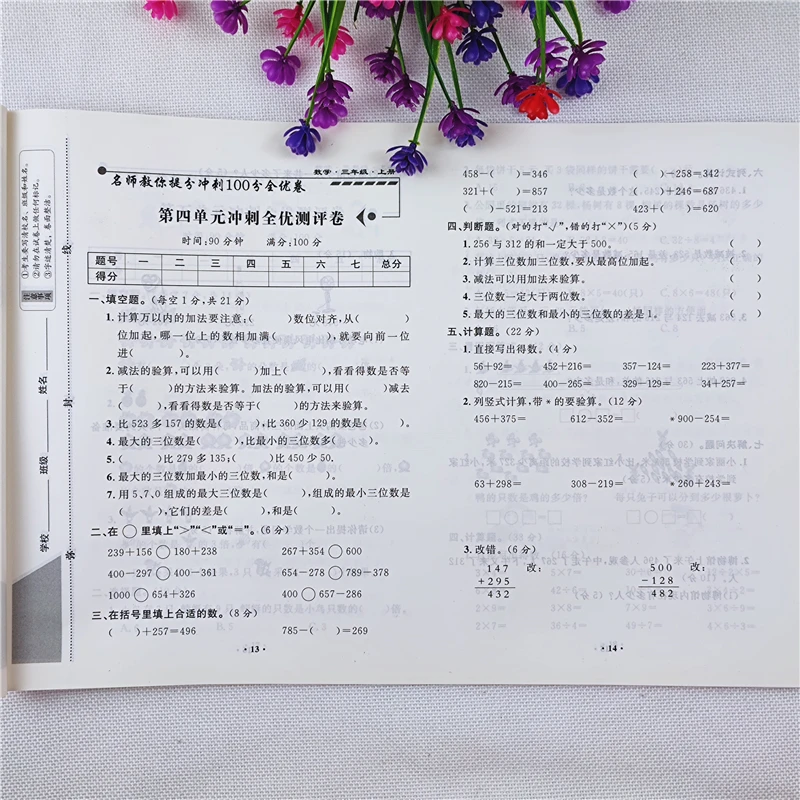 注意事项
①考生要写清校名、班级和姓名。
②请勿在试卷上做任何标记。
③字迹清楚,卷面整洁。
学校 班级 姓名
弥 封 线
数学·三年级·上册
名师教你提分冲刺100分全优卷
第四单元冲刺全优测评卷
时间:90分钟 满分:100分
题号 一 二 三 四 五 六 七 总分
得分
一、填空题。(每空1分,共21分)
1. 计算万以内的加法要注意:( )数位对齐,从( )
位加起,哪一位上的数相加满( ),就要向前一位
进( )。
2. 减法的验算,可以用( )加上( ),看看得数是否等
于( )的方法来验算。加法的验算,可以用( )减去
( ),看看得数是否等于( )的方法来验算。
3. 比523多157的数是( ),比360少129的数是( )。
4. 最大的三位数是( ),比最小的三位数多( )。
5. ( )比279多135;( )比450少50。
6. 最大的三位数加最小的三位数,和是( )。
7. 用5、7、0组成的最大三位数是( ),组成的最小三位数是
( ),它们的差是( ),和是( )。
二、在○里填上“>”“<”或“=”。(6分)
239+156○180+238 267+354○600
400-297○400-361 654-278○789-378
1000○654+326 400○657-286
三、在括号里填上合适的数。(8分)
( )+257=496 785-( )=269
·13·
458-( )=346 ( )-258=342
321+( )=857 ( )+246=687
( )-521=213 423+( )=620
四、判断题。(对的打“√”,错的打“×”)(5分)
1. 256与312的和一定大于500。 ( )
2. 计算三位数加三位数,要从最高位加起。 ( )
3. 减法可以用加法来验算。 ( )
4. 三位数一定大于两位数。 ( )
5. 最大的三位数和最小的三位数的差是1。 ( )
五、计算题。(22分)
1. 直接写出得数。(4分)
56+92= 452+216= 357-124= 223+377=
820-215= 400-265= 329-129= 34+257=
2. 列竖式计算,带*的要验算。(12分)
456+375= 612-352= *900-254=
63+298= 308-219= *260+243=
3. 改错。(6分)
147 改: 500 改:
+295 -128
432 482
·14·